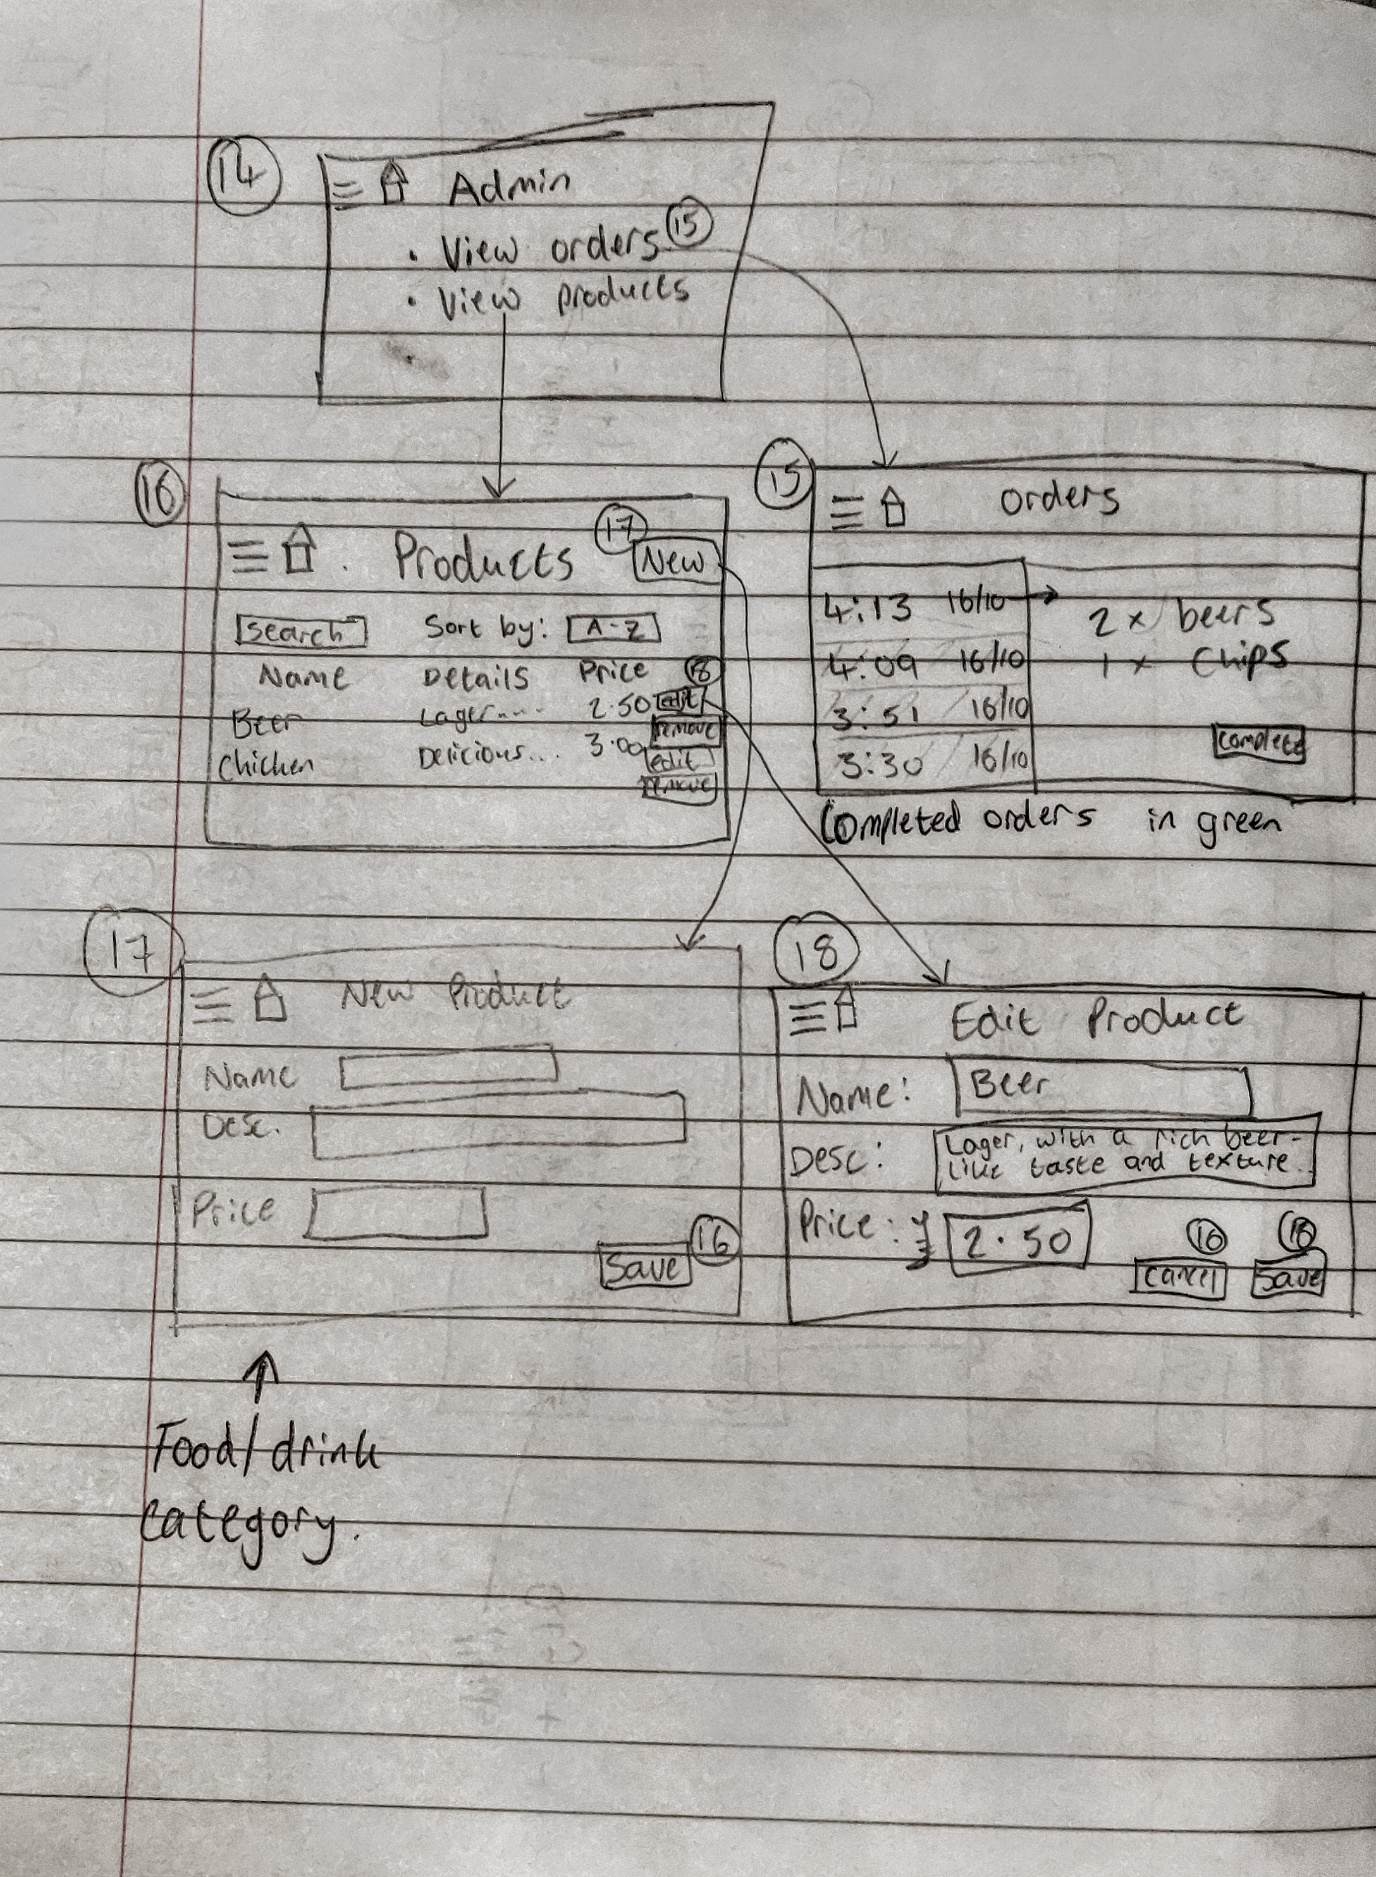 14
Admin
• View orders 15
• View products
16
Products 17 New
Search Sort by: A-Z
Name Details Price 18
Beer Lager.... 2.50 edit
remove
Chicken Delicious... 3.00 edit
remove
15
orders
4:13 16/10 2 x beers
4:09 16/10 1 x Chips
3:51 16/10
3:30 16/10
Complete
Completed orders in green
17
New Product
Name
Desc.
Price
Save 16
18
Edit Product
Name: Beer
Desc: Lager, with a rich beer-
like taste and texture.
Price: 2.50
16
Cancel Save
Food/drink
category.